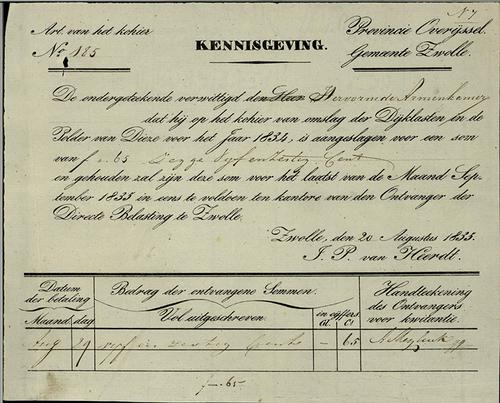 No 7
Art. van het kohier
No. 185
KENNISGEVING.
Provincie Overijssel.
Gemeente Zwolle.
De ondergeteekende verwittigd den Heer Hervormde Armenkamer
dat hij op het kohier van omslag der Dijklasten in de
Polder van Dieze voor het Jaar 1834, is aangeslagen voor een som
van f -.65 Zegge Vyfenzestig Cent
en gehouden zal zijn deze som voor het laatst van de Maand Sep-
tember 1835 in eens te voldoen ten kantore van den Ontvanger der
Directe Belasting te Zwolle.
Zwolle, den 20 Augustus 1835.
J. P. van Heerdt.
Datum der betaling
Bedrag der ontvangene Sommen.
Handteekening des Ontvangers voor kwitantie.
Maand dag
Vol uitgeschreven
in cyffers
Gl. Ct
Aug 29 vyf en zestig Cents - 65
f -.65-